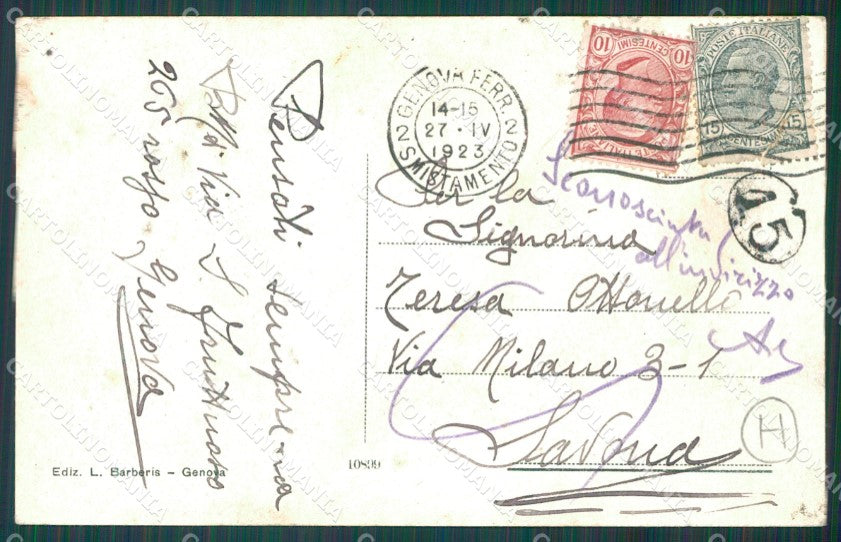 Pensati sempre
Via S. Fruttuoso
265 rosso, Genova
GENOVA FERR.
14-15
27 · IV
1923
2 SMISTAMENTO 2
10 CENTESIMI 10
POSTE ITALIANE
15 CENTESIMI 15
15
Sconosciuta
all'indirizzo
la
Signorina
Teresa Ottonello
Via Milano 3-1
Savona
H
Ediz. L. Barberis – Genova
10899
CARTOLINOMANIA